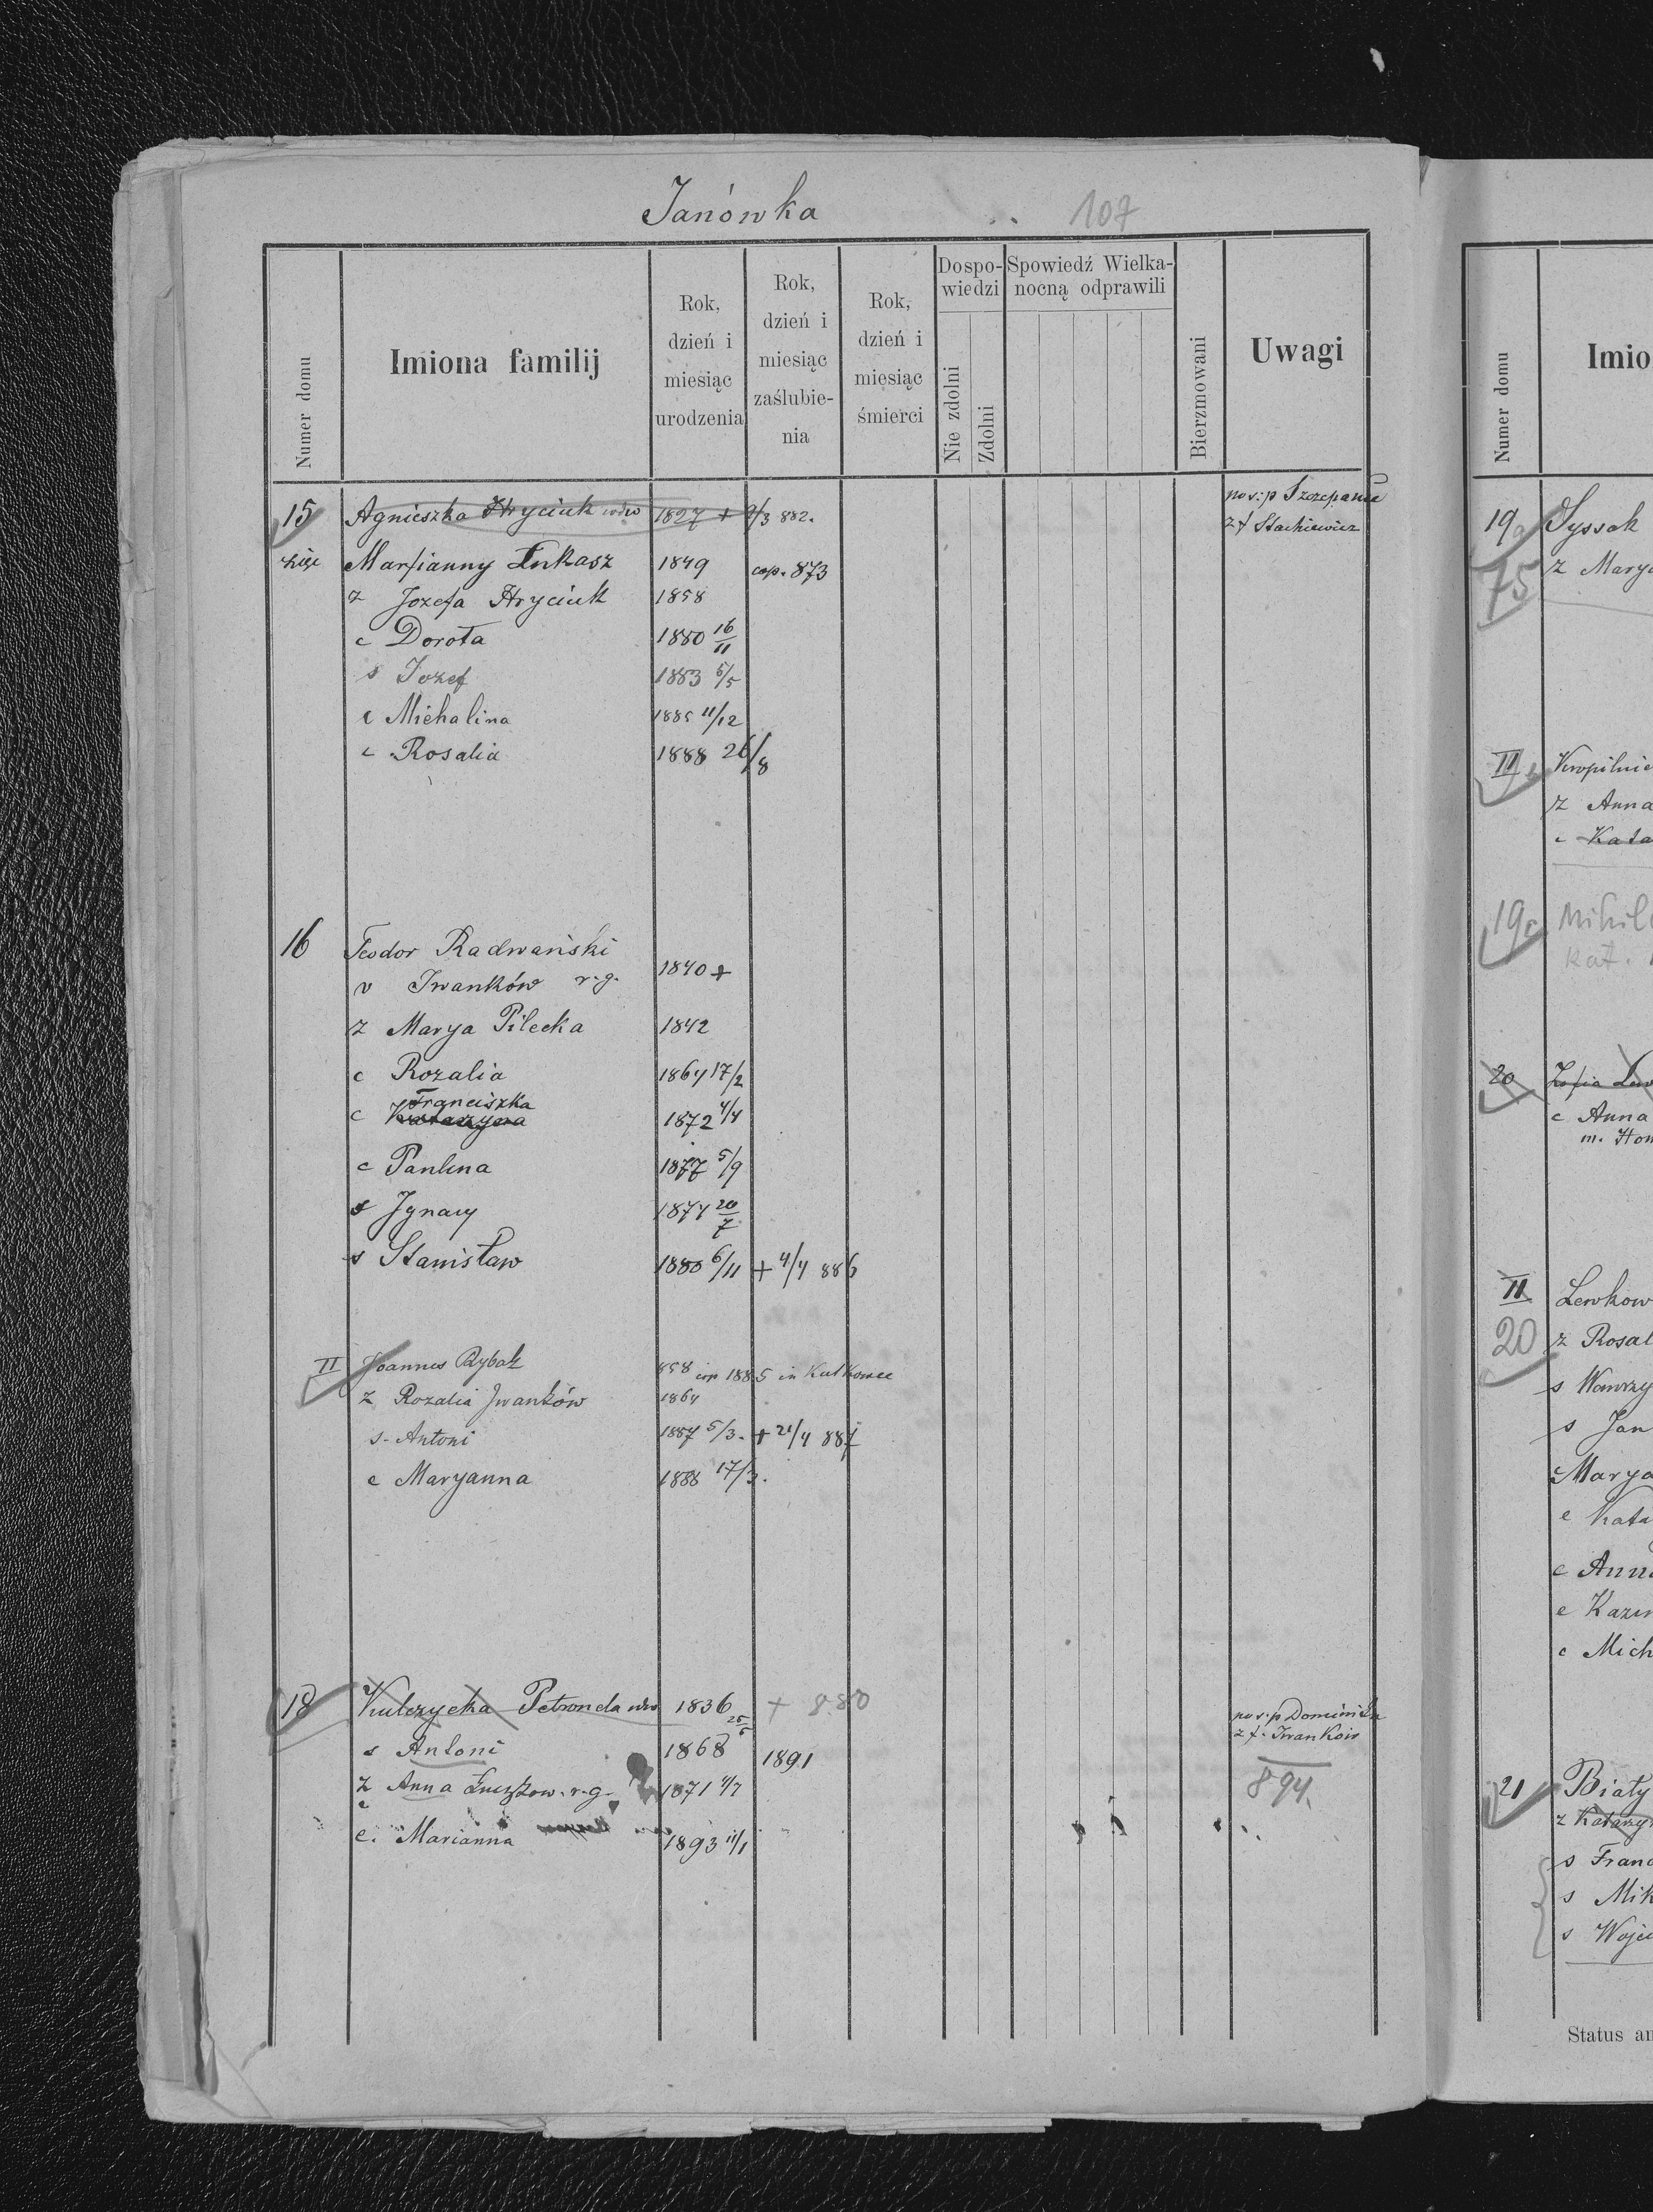 Janówka 107
Numer domu
Imiona familij
Rok, dzień i miesiąc urodzenia
Rok, dzień i miesiąc zaślubienia
Rok, dzień i miesiąc śmierci
Do spowiedzi
Nie zdolni
Zdolni
Spowiedź Wielkanocną odprawili
Bierzmowani
Uwagi
15 Agnieszka Hryciuk wdw 1827 + 9/3 882. po ś:p Szczepanie
z f Stachiewicz
Maryanny Łukasz 1849 cop. 873
z Jozefa Hryciuk 1858
c Dorota 1880 16/11
s Jozef 1883 5/5
c Michalina 1885 11/12
c Rosalia 1888 26/8
16 Teodor Radwański
v Iwanków r.g. 1840 +
z Marya Pilecka 1842
c Rozalia 1864 17/2
Franciszka
c Katarzyna 1872 4/4
c Paulina 1877 5/9
s Ignacy 1874 20/7
s Stanisław 1880 6/11 + 4/4 886
II Joannes Rybak 858 cop 1885 in Kutkowce
z Rozalia Iwanków 1864
s. Antoni 1887 5/3. + 21/4 887
c Maryanna 1888 17/3.
18 Kulczycka Petronela wdw 1836 + 880 po ś:p Dominiku
z f. Iwanków
s Antoni 1868 25/5 1891
z Anna r.g. 1871 4/7 894.
c. Marianna 1893 11/1
Numer domu
Imio
19a Syssak
z Mary
75
II b Kropilnic
z Anna
c Kata
19c Mikil
Kat.
20 Zofia Lew
c Anna
m. Hon
II Lewkow
20 z Rosal
s Wawrzy
s Jan
Marya
c Kata
c Anna
c Kazim
c Mich
21 Biały
z Katarzy
s Franc
s Mik
s Wojci
Status an